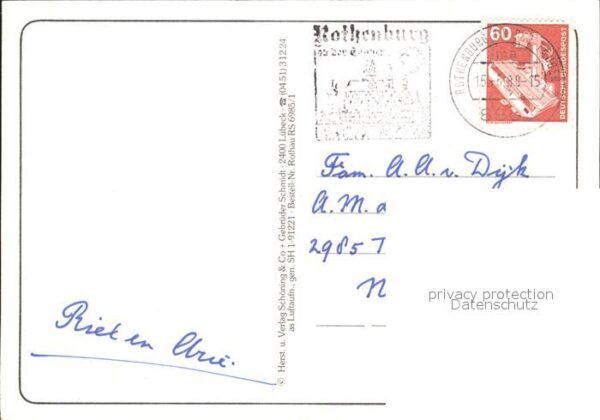 Rothenburg
ob der Tauber
60
DEUTSCHE BUNDESPOST
Fam. A.A. v. Dijk
A.M.
2985 T
N
privacy protection
Datenschutz
Riet en Arie.
© Herst. u. Verlag Schöning & Co + Gebrüder Schmidt · 2400 Lübeck · ☎ (0451) 31224
as Luftaufn., gen. SH 1-91221 · Bestell-Nr. Rothau RS 6985/1